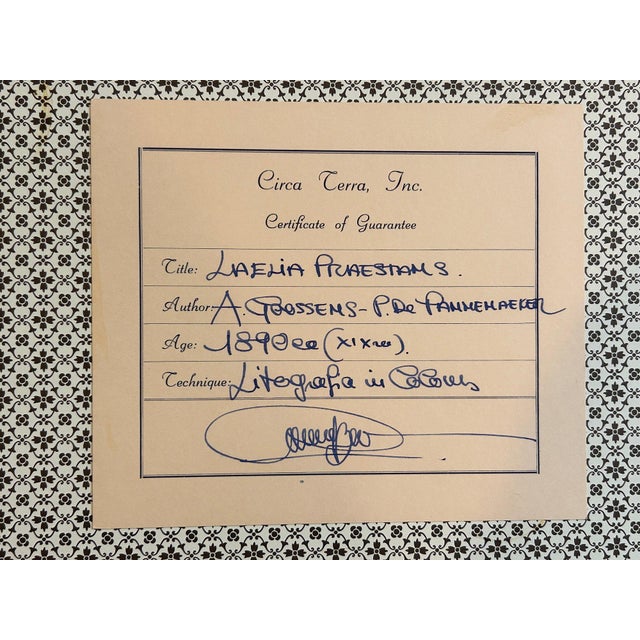 Circa Terra, Inc.
Certificate of Guarantee
Title: LAELIA PRAESTANS.
Author: A. GOOSSENS - P. De PANNEMAEKER
Age: 1890 ca (XIX sec).
Technique: Litografia in Colours